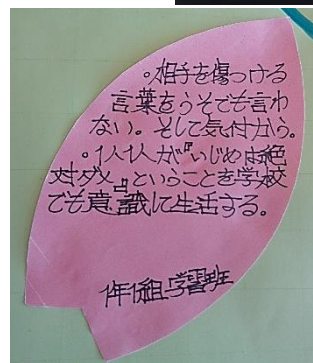 。相手を傷つける
言葉をうそでも言わ
ない。そして気付から。
。1人1人が『いじめは絶
対ダメ』ということを学校
でも意識して生活する。
1年1組 学習班